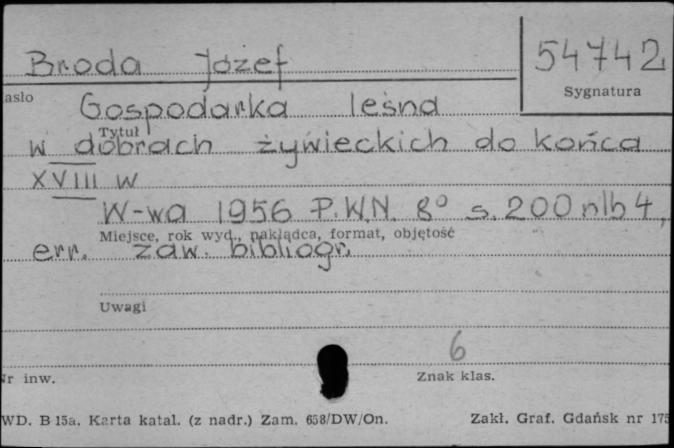 54742
Broda Józef
Sygnatura
asło
Gospodarka leśna
Tytuł
w dobrach żywieckich do końca
XVIII w
W-wa 1956 P.W.N. 8° s. 200 nlb 4,
Miejsce, rok wyd., nakładca, format, objętość
err. zaw. bibliogr.
Uwagi
6
Nr inw.
Znak klas.
WD. B 15a. Karta katal. (z nadr.) Zam. 658/DW/On.
Zakł. Graf. Gdańsk nr 175